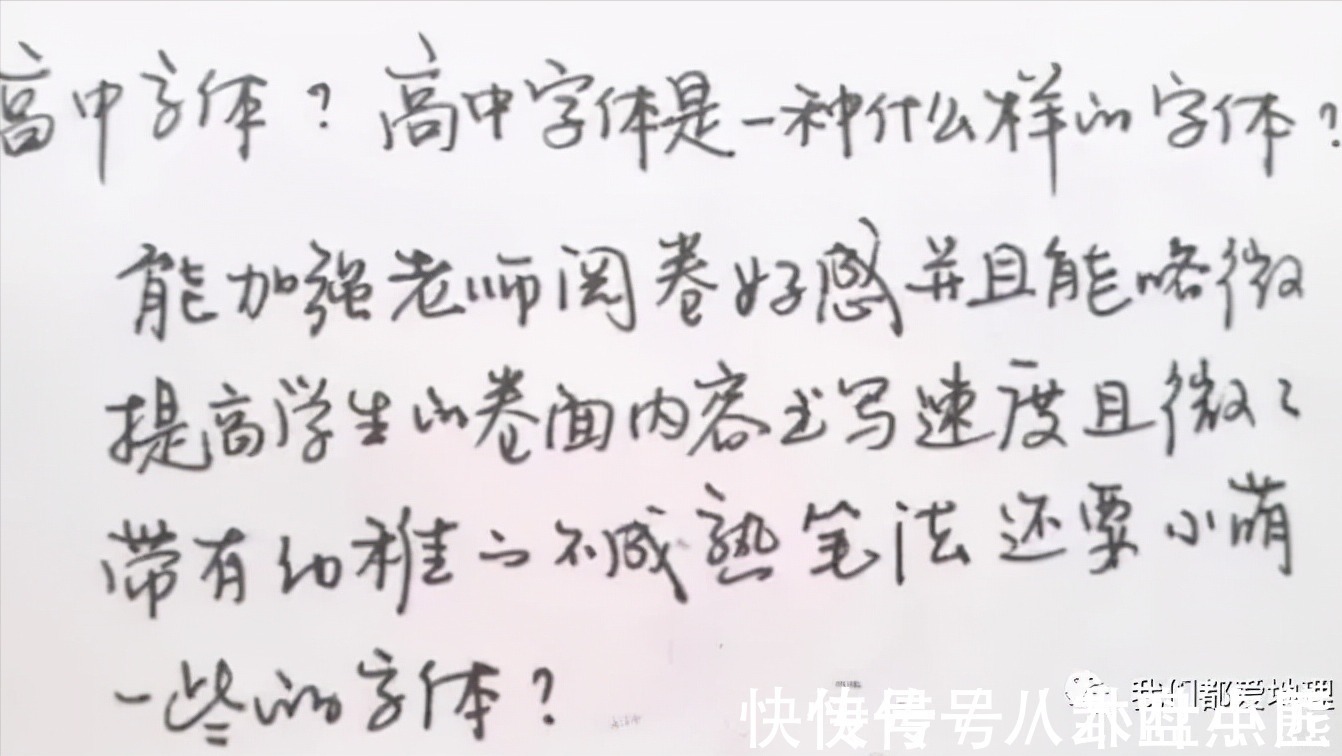 高中字体？高中字体是一种什么样的字体？
能加强老师阅卷好感并且能略微
提高学生的卷面内容书写速度且微々
带有幼稚 不成熟笔法还要小萌
一些的字体？
我们都爱地理